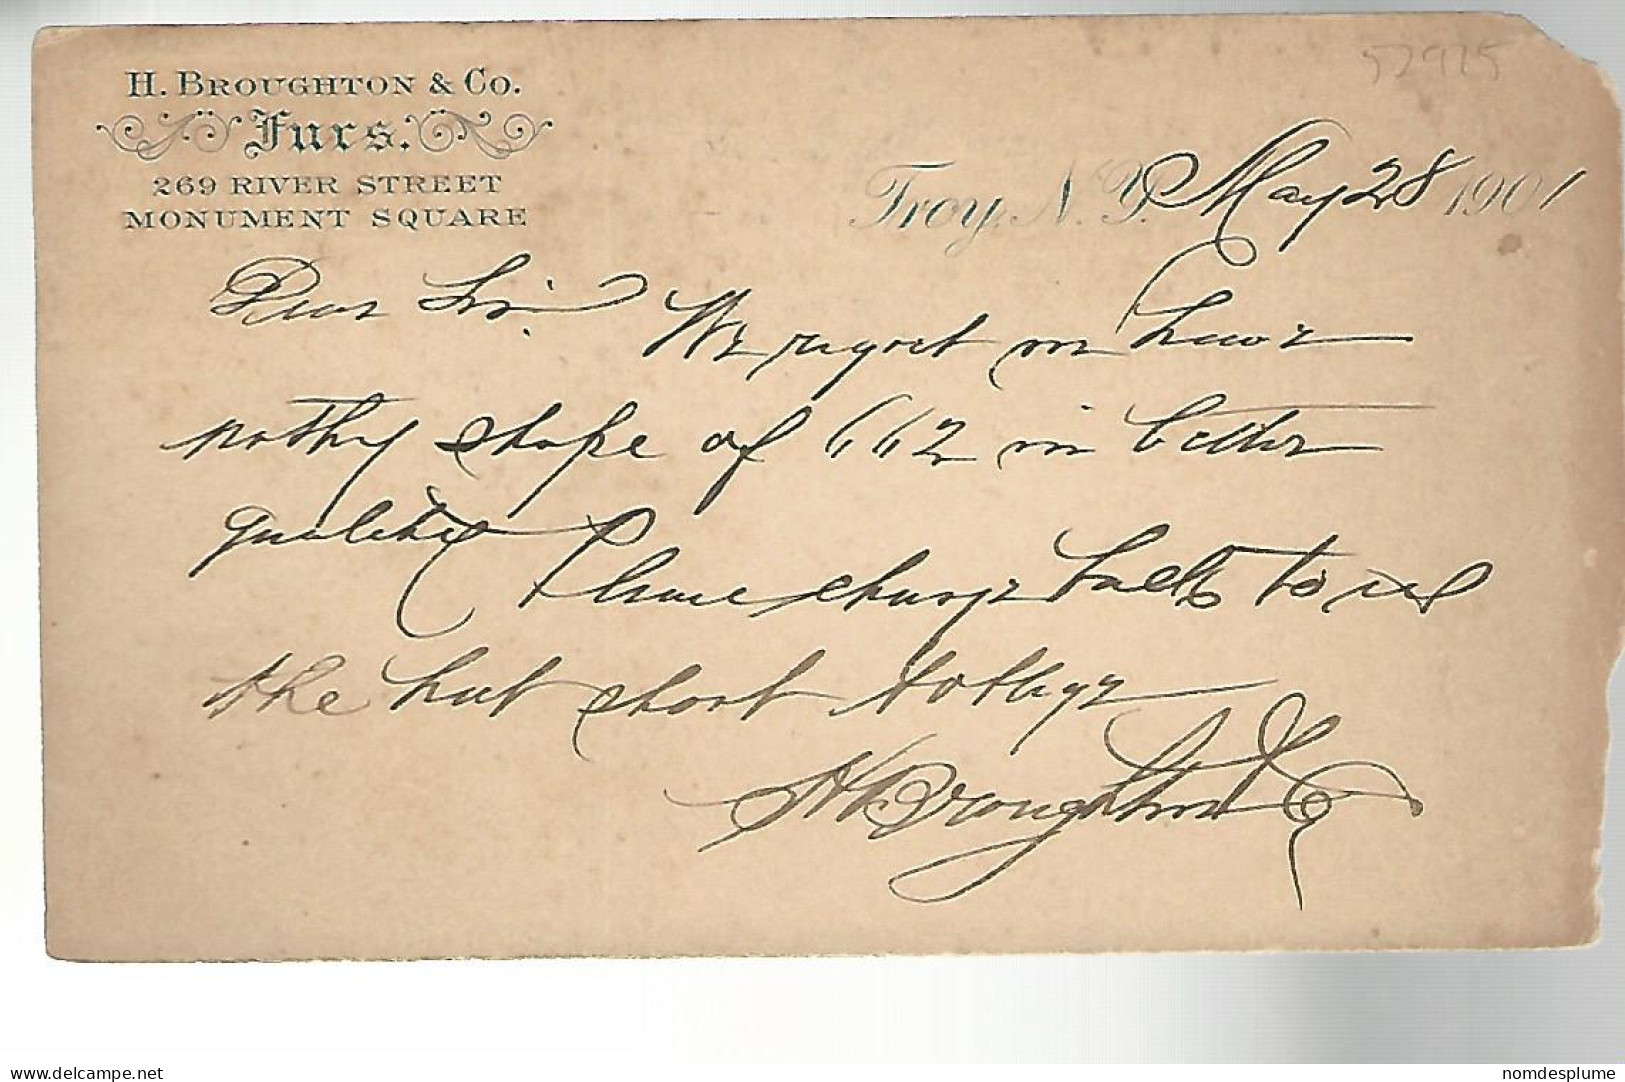 52975
H. BROUGHTON & CO.
Furs.
269 RIVER STREET
MONUMENT SQUARE
Troy, N. Y. May 28 1901
Dear Sir. We regret we have
nothg shape of 662 in better
qualities Please charge back to us
the hat short
H Broughton & Co
delcampe.net
nomdesplume